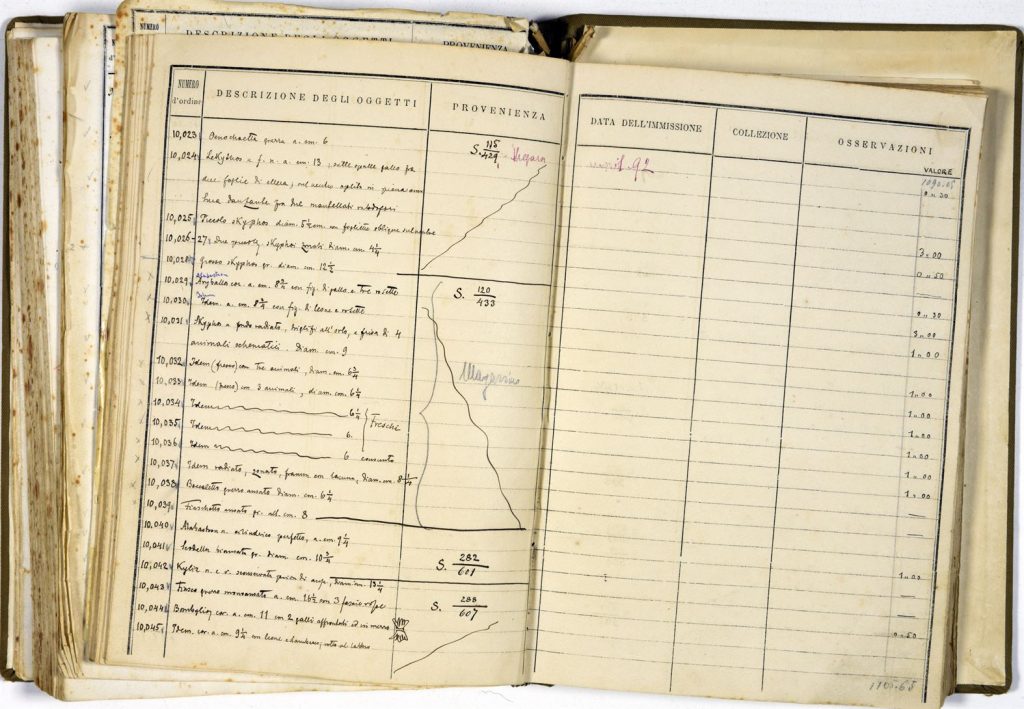 NUMERO
DESCRIZIONE DEGLI OGGETTI
PROVENIENZA
NUMERO
d'ordine
DESCRIZIONE DEGLI OGGETTI
PROVENIENZA
DATA DELL'IMMISSIONE
COLLEZIONE
OSSERVAZIONI
VALORE
10,023 grezza a. cm. 6
S. 115/429 Megara
10,024 Lekythos a f. n. a. cm. 13, sulle spalle gallo fra
due foglie di ellera, sul ventre oplita in
fra due
0 = 30
10,025 Piccolo skyphos diam. 5½ cm. con foglette oblique sul ventre
10,026-27 Due piccoli skyphoi zonati diam. cm 4¼
3 = 00
10,028 Grosso skyphos gr. diam. cm 12½
0 = 50
10,029 Aryballo cor. a. cm. 8¾ con fig. di gallo e tre rosette
S. 120/433
10,030 Idem a. cm. 8¾ con fig. di leone e rosette
0 = 30
10,031 Skyphos a fondo radiato, triglifi all'orlo, e fascia di 4
3 = 00
animali schematici. Diam. cm. 9
1 = 00
10,032 Idem (fresco) con tre animali, diam. cm. 6¾
Magazzino
10,033 Idem (fresco) con 3 animali, diam. cm. 6¼
1 = 00
10,034 Idem 6¼
Freschi
1 = 00
10,035 Idem 6
1 = 00
10,036 Idem 6 consunto
1 = 00
10,037 Idem radiato, zonato, framm. con lacuna, diam. cm. 8¼
1 = 00
10,038 Boccaletto grezzo ansato diam. cm. 6¼
1 = 00
10,039 Fiaschetto ansato gr. alt. cm. 8
10,040 Alabastron a. cilindrico perfetto, a. cm. 9¼
10,041 Scodella biansata gr. diam. cm. 10¾
S. 282/601
10,042 Kylix n. e v. di anse, diam. cm. 13¼
1 = 00
10,043 Fiasco grezzo monoansato a. cm. 16½ con 3 fascie rosse
S. 288/607
10,044 Bombylios cor. a. cm. 11 con 2 galli affrontati ed in mezzo
0 = 50
10,045 Idem. cor. a. cm. 9¼ con leone
1105.65